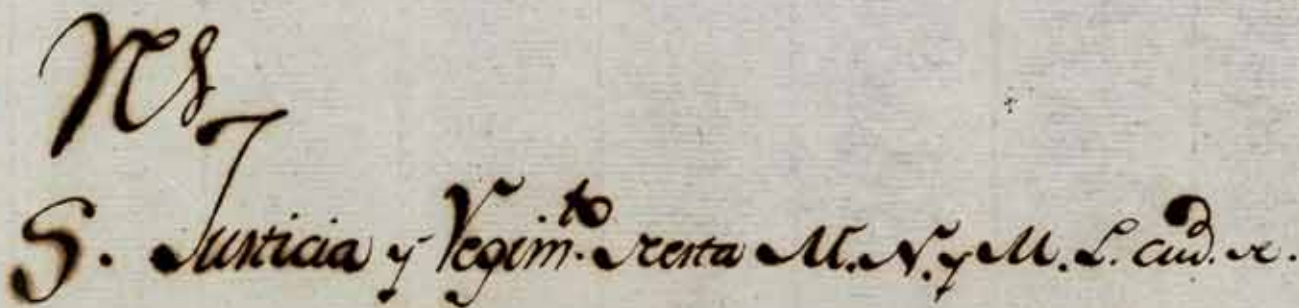 S. Justicia y Regim.to desta M. N. y M. L. ciud. de.